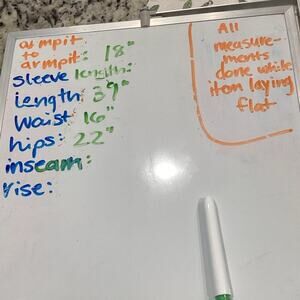 armpit
to
armpit: 18"
sleeve length:
Length: 39"
Waist 16"
hips: 22"
inseam:
rise:
All
measure-
ments
done while
item laying
flat